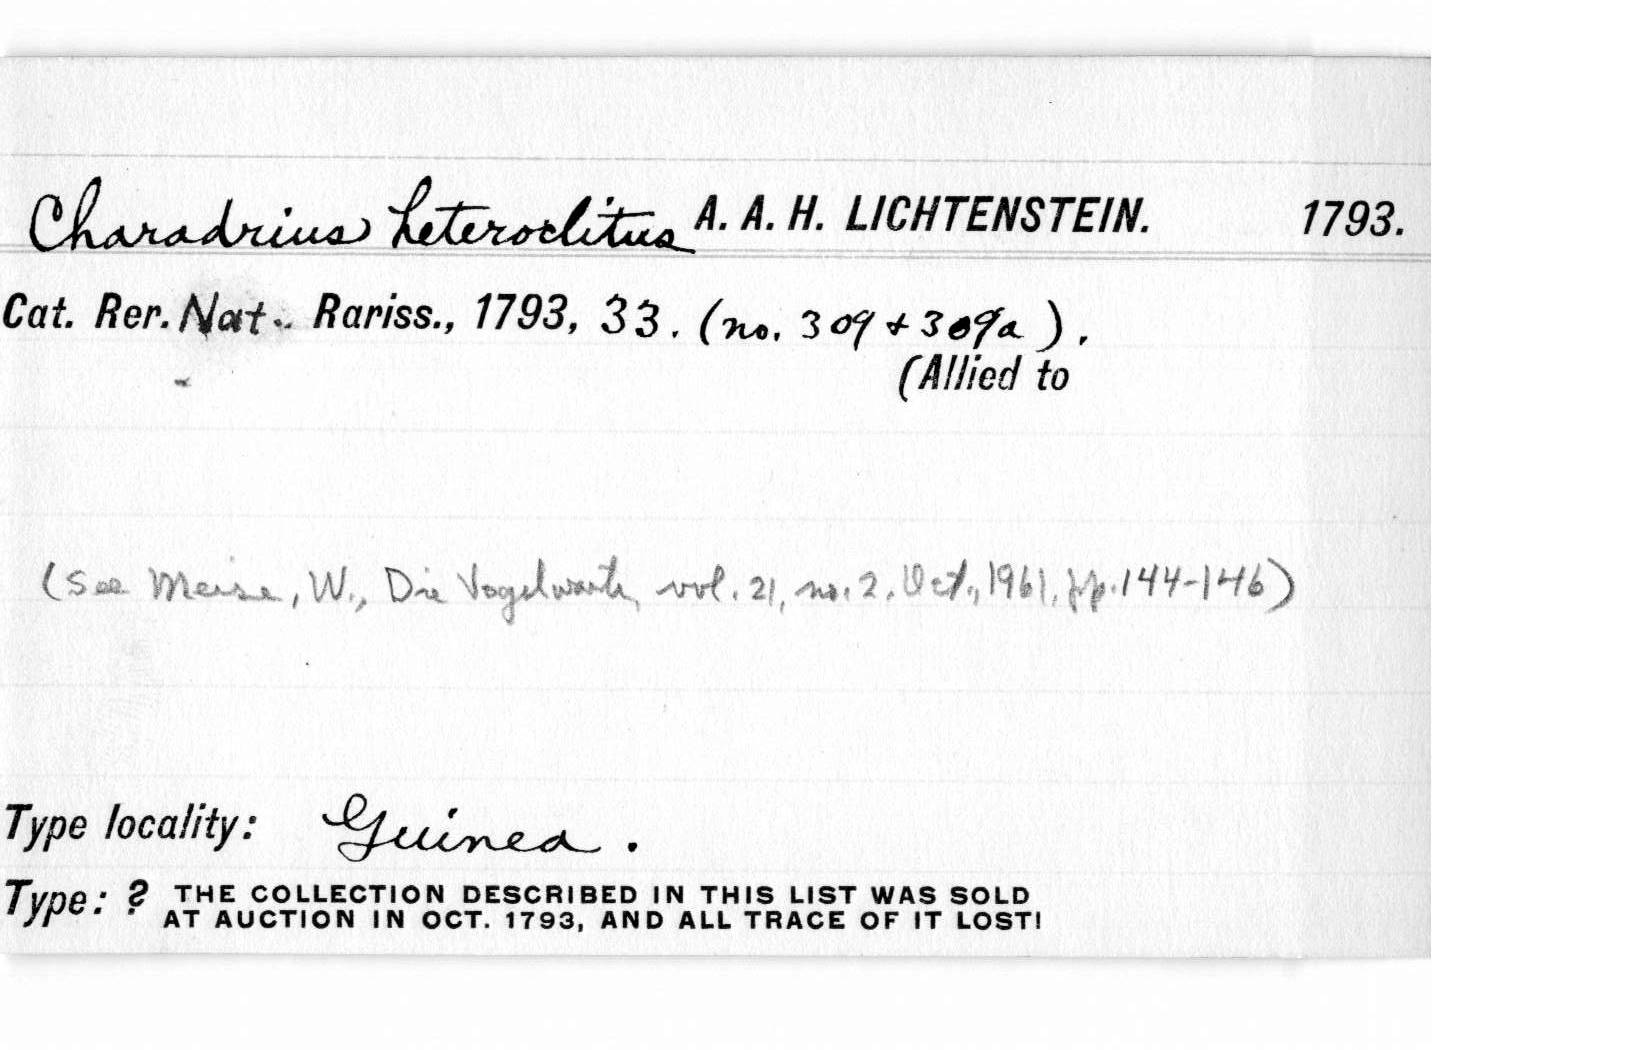 Charadrius heteroclitus A. A. H. LICHTENSTEIN. 1793.
Cat. Rer. Nat. Rariss., 1793, 33. (no. 309 + 309a).
(Allied to
(See Meise, W., Die Vogelwarte, vol. 21, no. 2, Oct., 1961, pp. 144-146)
Type locality: Guinea.
Type: ? THE COLLECTION DESCRIBED IN THIS LIST WAS SOLD
AT AUCTION IN OCT. 1793, AND ALL TRACE OF IT LOST!